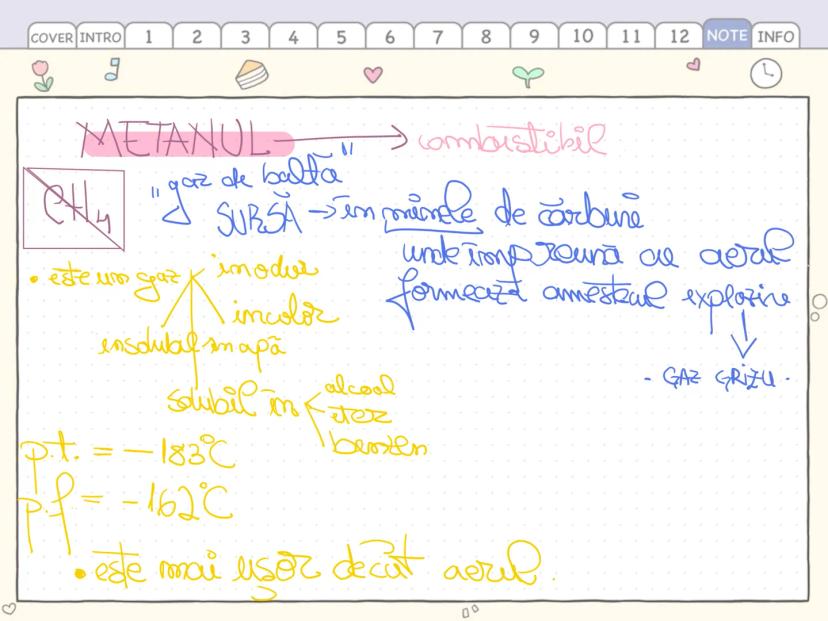 COVER INTRO 1 2 3 4 5 6 7 8 9 10 11 12 NOTE INFO
METANUL → combustibil
CH4
"gaz de baltă"
SURSĂ → în minele de cărbuni
unde împreună cu aerul
formează amestecul exploziv
- GAZ GRIZU -
• este un gaz
inodor
incolor
insolubil în apă
solubil în
alcool
eter
benzen
p.t. = -183°C
p.f = -162°C
• este mai ușor decât aerul.